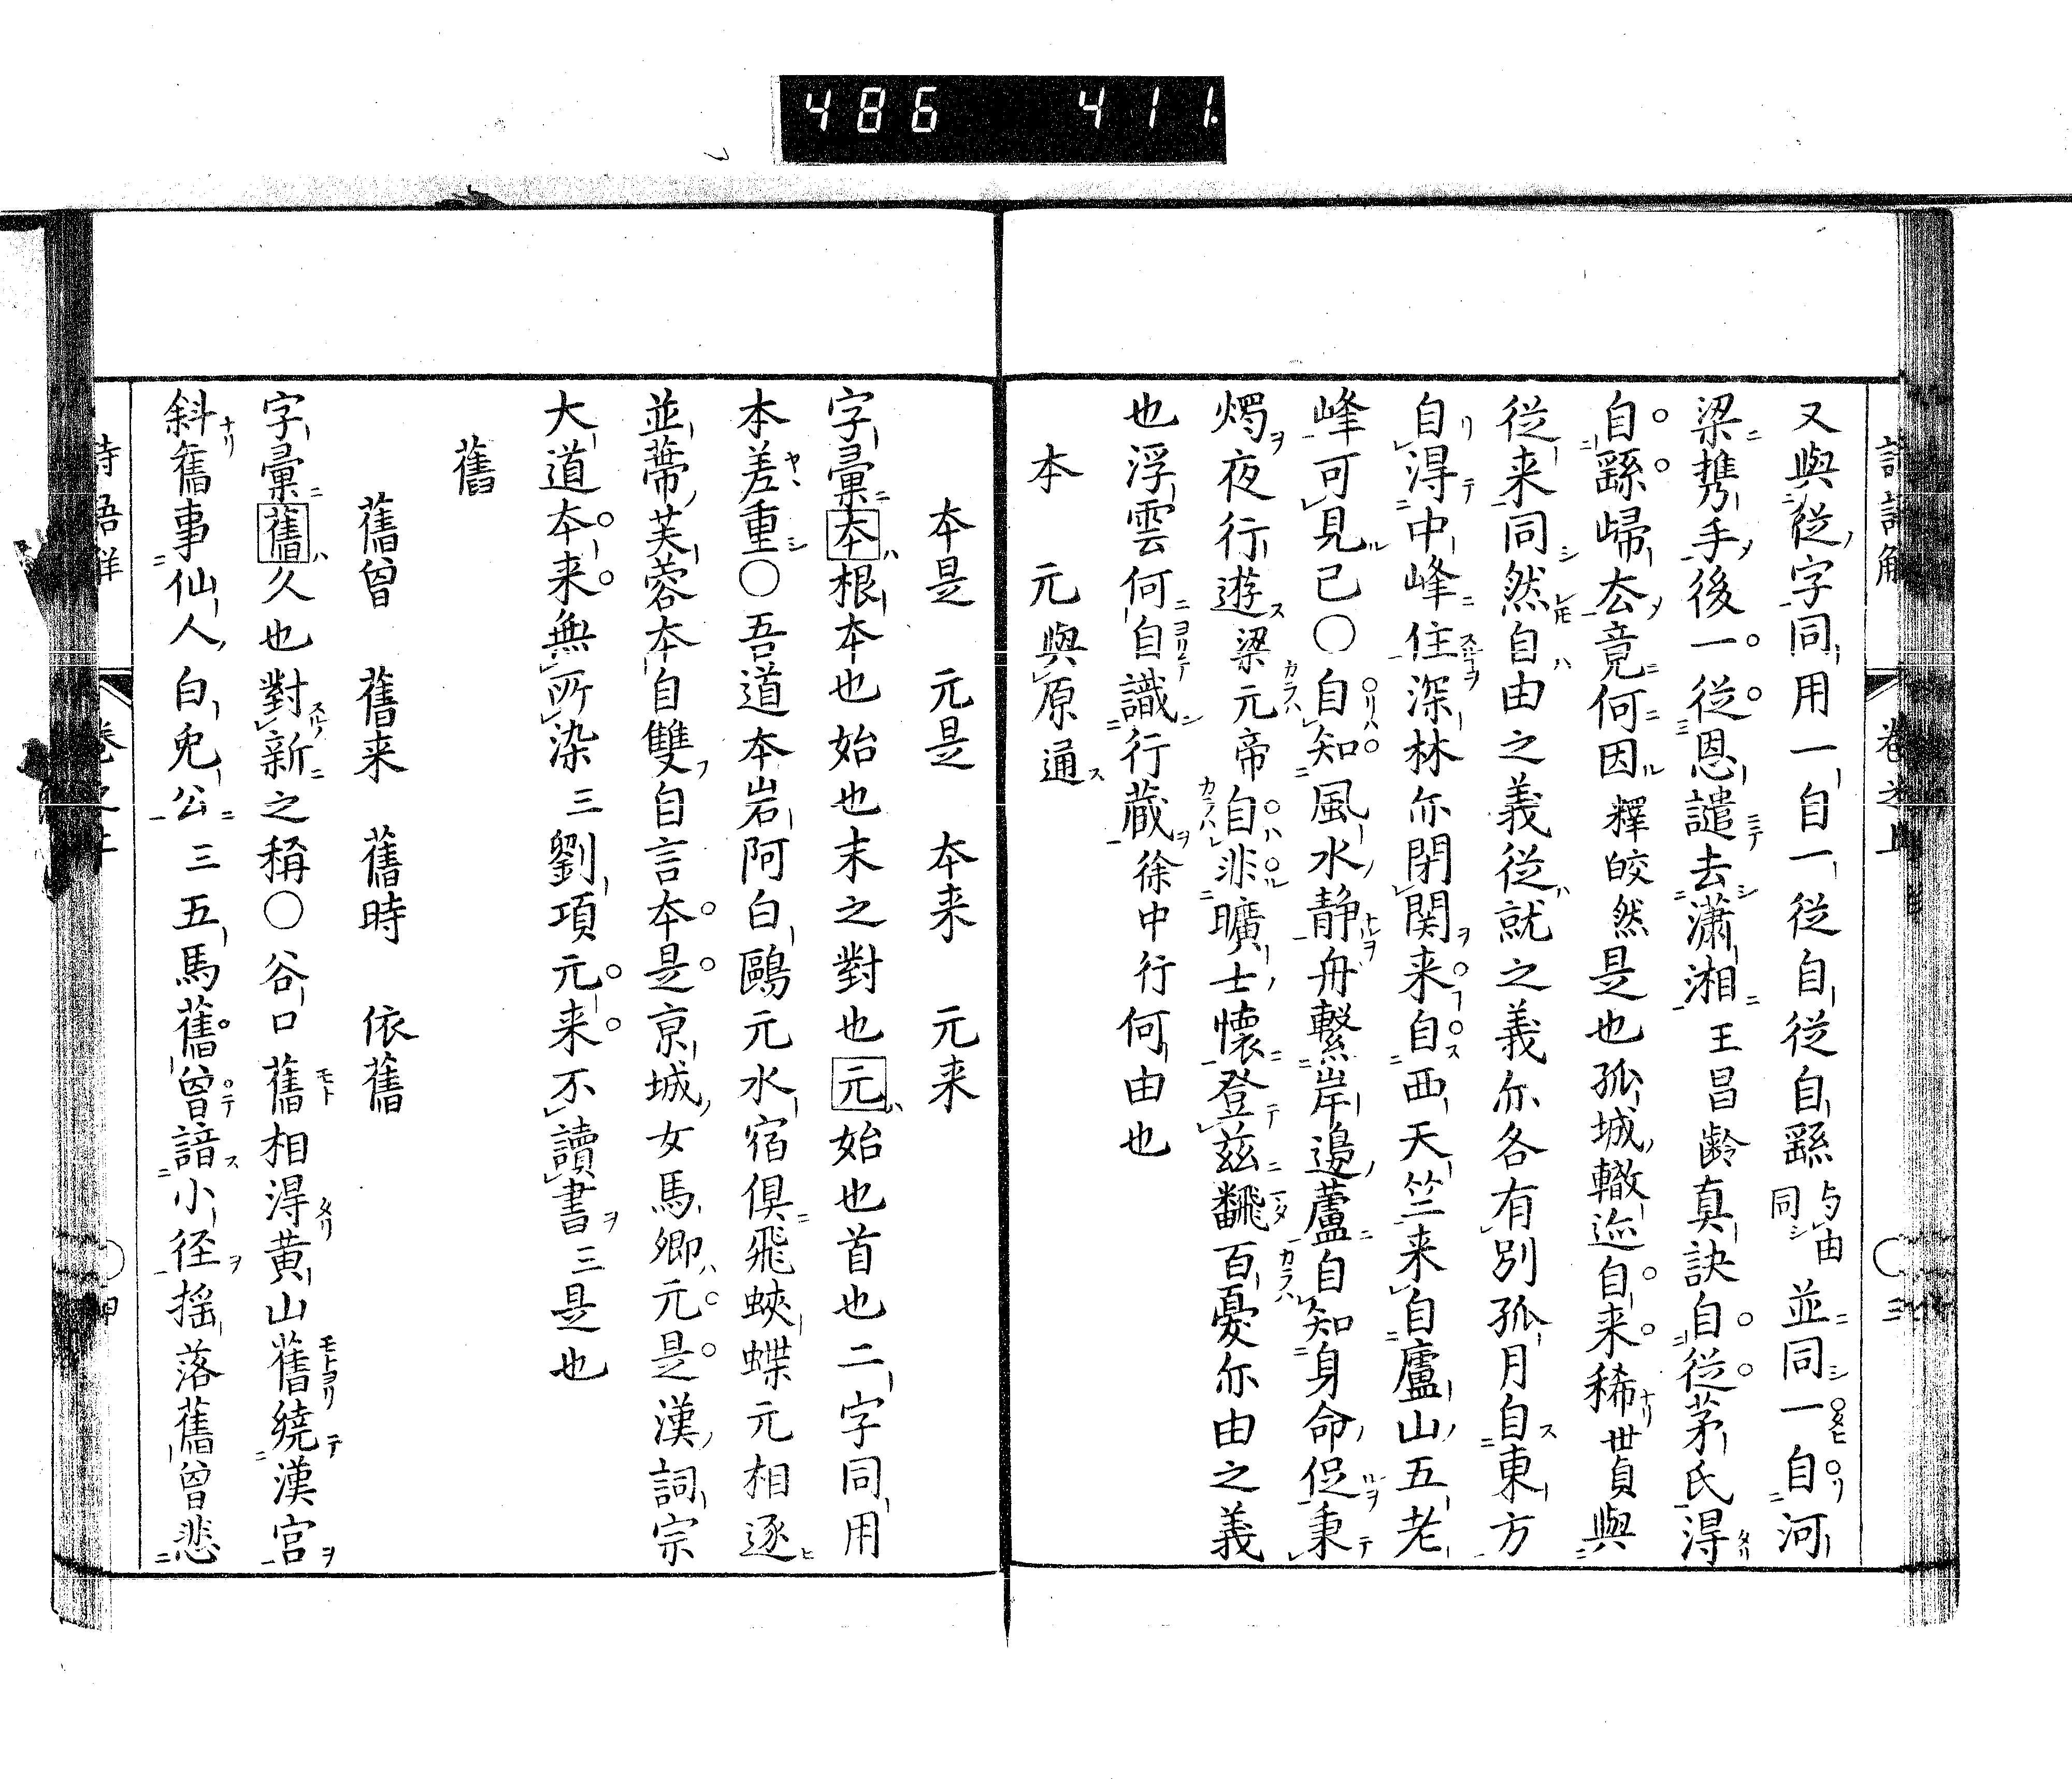 486 411.
又與従字同用一自一従自従自繇与由同並同一自河
梁携手後一従恩譴去瀟湘王昌齢真訣自従茅氏得
自繇帰去竟何因釋皎然是也孤城轍迹自来稀世貞與
従来同然自由之義従就之義亦各有別孤月自東方
自得中峰住深林亦閉関来自西天竺来自廬山五老
峰可見已○自知風水静舟繫岸邉蘆自知身命促秉
燭夜行遊梁元帝自非曠士懐登茲飜百憂亦由之義
也浮雲何自識行蔵徐中行何由也
本　元與原通
本是　元是　本来　元来
字彙本根本也始也末之對也元始也首也二字同用
本差重○吾道本岩阿白鷗元水宿倶飛蛺蝶元相逐
並蔕芙蓉本自雙自言本是亰城女馬卿元是漢詞宗
大道本来無所染三劉項元来不讀書三是也
舊
舊曽　舊来　舊時　依舊
字彙舊久也對新之稱○谷口舊相得黄山舊繞漢宮
斜舊事仙人白兎公三五馬舊曽諳小径揺落舊曽悲